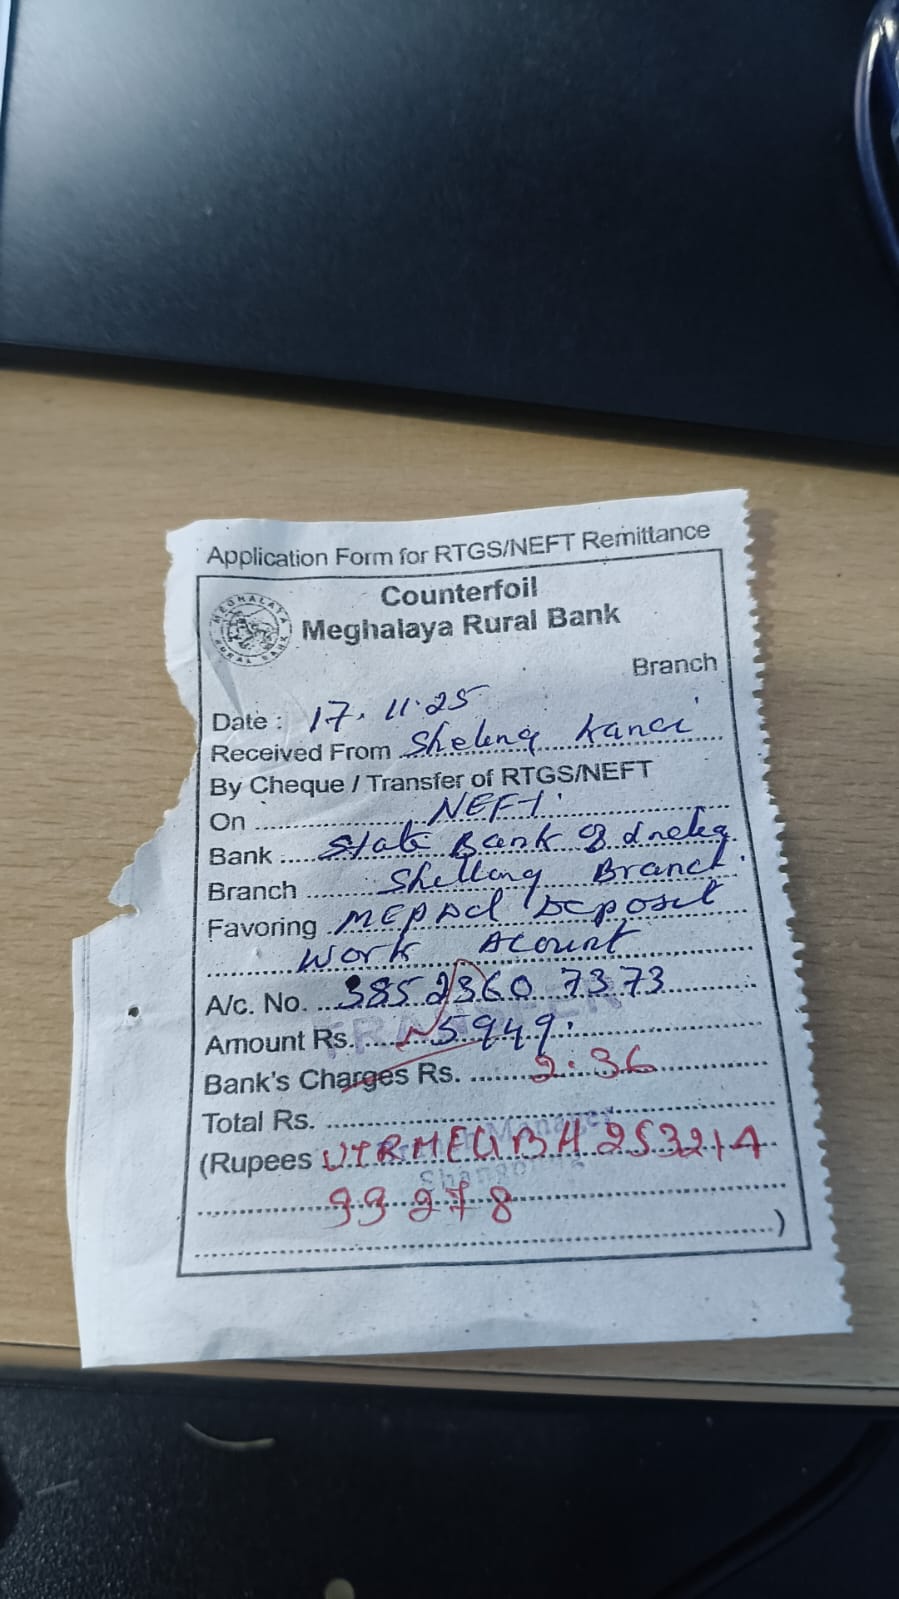 Application Form for RTGS/NEFT Remittance
Counterfoil
MEGHALAYA RURAL BANK
Meghalaya Rural Bank
Branch
Date : 17.11.25
Received From Sheleng
By Cheque / Transfer of RTGS/NEFT
On NEFT
Bank State Bank of
Branch Shellong Branch
Favoring Deposit
Work Acount
A/c. No. 385 2360 7373
Amount Rs. 5949
Bank's Charges Rs. 2.36
Total Rs.
Manager
(Rupees
)